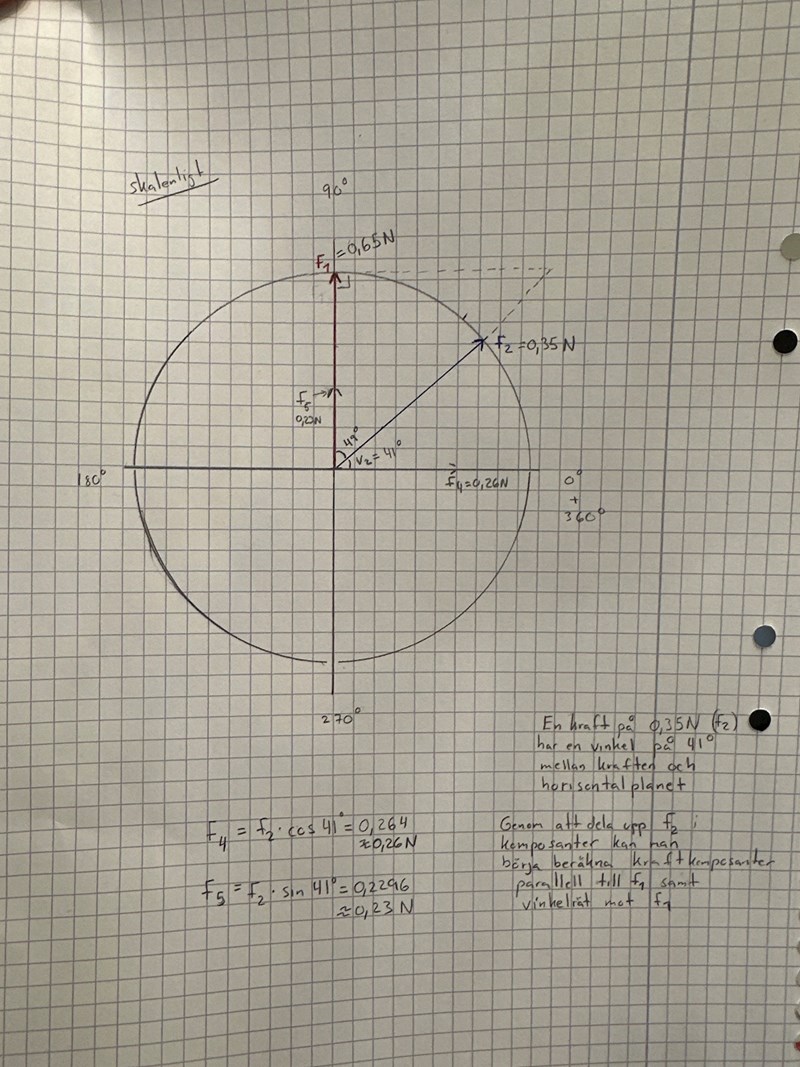 skalenligt
90°
F₁ = 0,65N
f₂ = 0,35N
f₅
0,23N
49°
v₂ = 41°
180°
f₄ = 0,26N
0°
+
360°
270°
En kraft på 0,35N (f₂)
har en vinkel på 41°
mellan kraften och
horisontalplanet
F₄ = f₂ · cos 41° = 0,264
≈ 0,26N
F₅ = f₂ · sin 41° = 0,2296
≈ 0,23 N
Genom att dela upp f₂ i
komposanter kan man
börja beräkna kraftkomposanter
parallell till f₁ samt
vinkelrät mot f₁